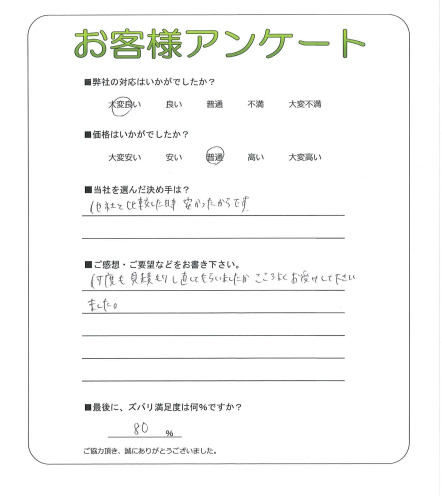 お客様アンケート
■弊社の対応はいかがでしたか？
大変良い 良い 普通 不満 大変不満
■価格はいかがでしたか？
大変安い 安い 普通 高い 大変高い
■当社を選んだ決め手は？
他社と比較した時 安かったからです
■ご感想・ご要望などをお書き下さい。
何度も見積もりし直してもらいましたが こころよくお受けして下さい
ました。
■最後に、ズバリ満足度は何%ですか？
80 %
ご協力頂き、誠にありがとうございました。